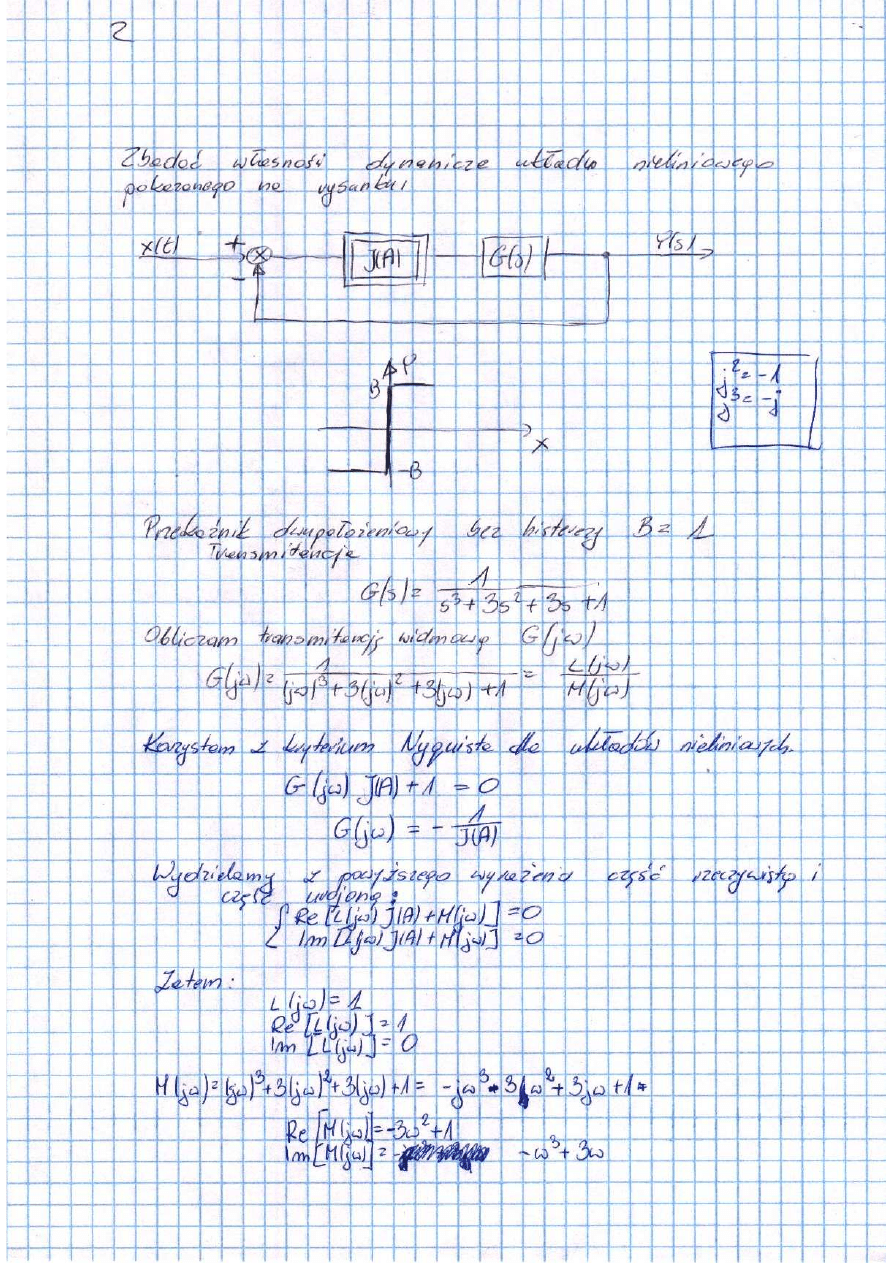 2
Zbadać własności dynamicze układu nieliniowego
pokazanego na rysunku:
x(t) + J(A) G(s) Y(s)
−
B Y
x
-B
j² = -1
j³ = -j
Przekaźnik dwupołożeniowy bez histerezy B = 1
Transmitancja
G(s) = 1 / (s³ + 3s² + 3s + 1)
Obliczam transmitancję widmową G(jω)
G(jω) = 1 / ((jω)³ + 3(jω)² + 3(jω) + 1) = L(jω) / M(jω)
Korzystam z kryterium Nyquista dla układów nieliniowych.
G(jω) J(A) + 1 = 0
G(jω) = - 1 / J(A)
Wydzielamy z powyższego wyrażenia część rzeczywistą i
część urojoną:
{ Re [L(jω) J(A) + M(jω)] = 0
Im [L(jω) J(A) + M(jω)] = 0
Zatem:
L(jω) = 1
Re [L(jω)] = 1
Im [L(jω)] = 0
M(jω) = (jω)³ + 3(jω)² + 3(jω) + 1 = -jω³ - 3ω² + 3jω + 1 =
Re [M(jω)] = -3ω² + 1
Im [M(jω)] = -ω³ + 3ω